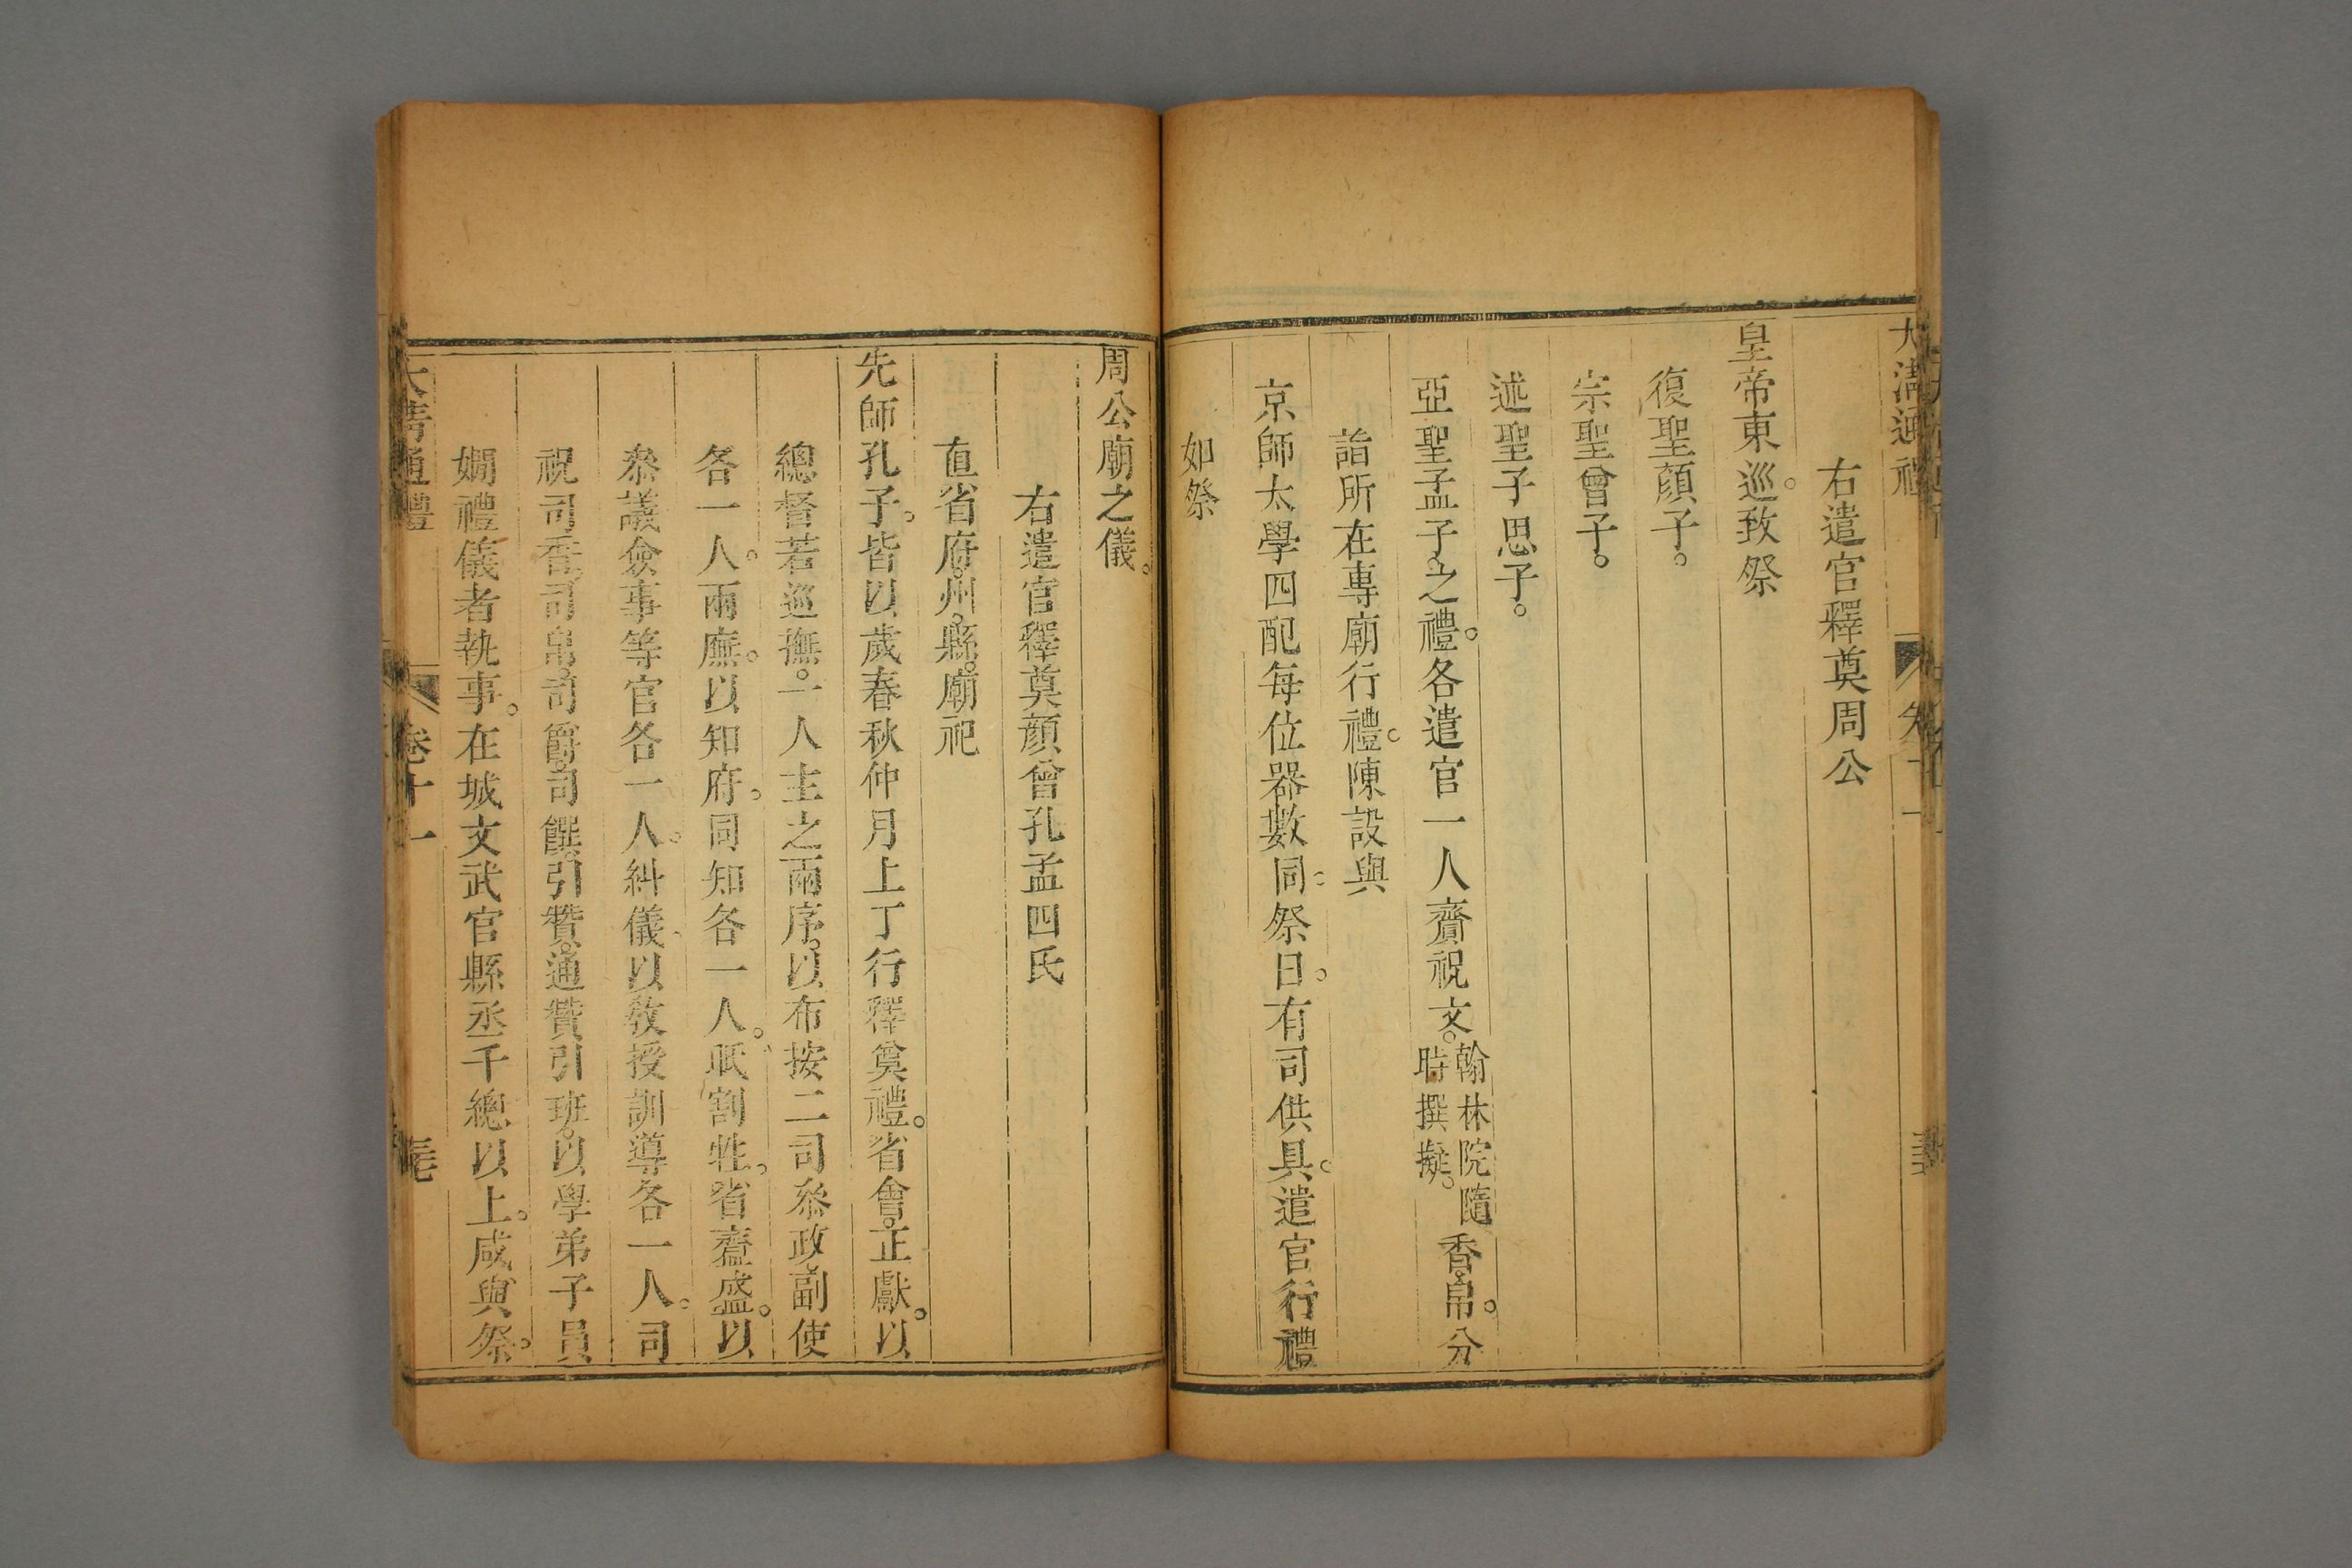 大清通禮 卷十一
右遣官釋奠周公
皇帝東巡。致祭
復聖顏子。
宗聖曾子。
述聖子思子。
亞聖孟子之禮。各遣官一人齎祝文。翰林院隨時撰擬。香帛。分
詣所在專廟行禮。陳設與
京師太學四配每位器數同。祭日。有司供具。遣官行禮
如祭
周公廟之儀。
右遣官釋奠顏曾孔孟四氏
直省府。州。縣。廟祀
先師孔子。皆以歲春秋仲月上丁行釋奠禮。省會。正獻。以
總督若巡撫。一人主之兩序。以布按二司叅政副使
各一人。兩廡。以知府。同知各一人。眂割牲。省齍盛。以
叅議僉事等官各一人。糾儀。以敎授訓導各一人。司
祝司香。司帛。司爵。司饌。引贊。通贊引班。以學弟子員
嫺禮儀者執事。在城文武官縣丞千總以上。咸與祭。
大清通禮 卷十一